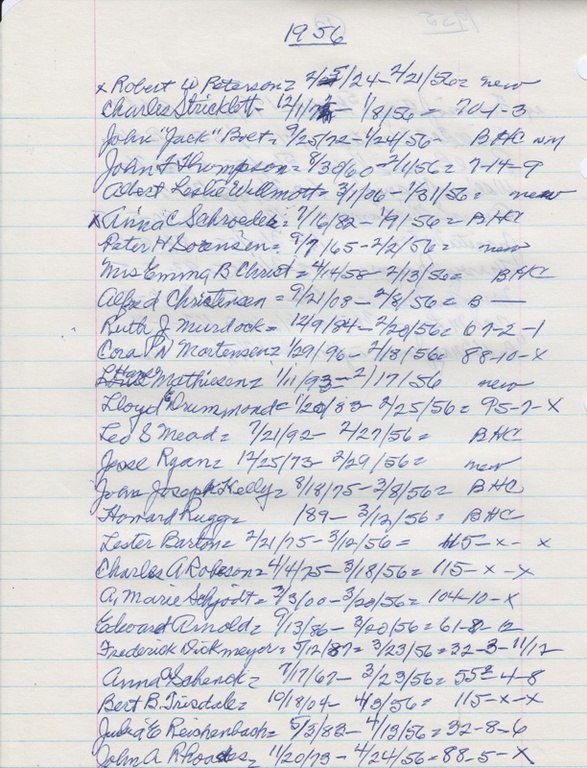 1956
x Robert W Peterson = 2/5/24 - 2/21/56 = new
Charles Stricklett - 12/1/7 - 1/8/56 = 70-1-3
John "Jack" Bolt = 9/25/72 - 1/24/56 - BHC
John F Thompson = 8/30/60 - 2/1/56 = 7-14-9
Albert Leslie Willmott = 3/1/06 - 1/31/56 = new
x Anna C Schroeder = 7/16/82 - 1/9/56 = BHC
Peter H Sorensen = 9/7/65 - 2/2/56 = new
Mrs Emma B Christ = 4/14/58 - 2/13/56 = BHC
Alfred Christensen = 9/21/08 - 2/8/56 = B —
Ruth J Murdock = 12/9/84 - 2/20/56 = 67-2-1
Cora P N Mortensen = 1/29/96 - 2/18/56 = 88-10-X
Mathiesen = 1/11/93 - 2/17/56 new
Lloyd E Drummond = 1/20/83 - 2/25/56 = 95-7-X
Leo S Mead = 7/21/92 - 2/27/56 = BHC
Jesse Ryan = 12/25/73 - 2/29/56 = new
John Joseph Kelly = 8/18/75 - 3/8/56 = BHC
Howard Rugg = 189 - 3/12/56 = BHC
Lester Barton = 2/21/75 - 3/12/56 = 115-x-x
Charles A Robeson = 4/4/75 - 3/18/56 = 115-x-x
A Marie Schjodt = 3/3/00 - 3/20/56 = 104-10-X
Edward Arnold = 9/13/86 - 3/20/56 = 61-8-12
Frederick Dickmeyer = 5/12/87 = 3/23/56 = 32-3-11/12
Anna Schenck = 7/17/67 - 3/23/56 = 55-4-8
Bert B. Tisdale = 10/18/04 - 4/3/56 = 115-x-x
Julia E Reichenbach = 5/3/82 - 4/13/56 = 32-8-6
John A Rhoades = 11/20/73 - 4/24/56 = 88-5-X